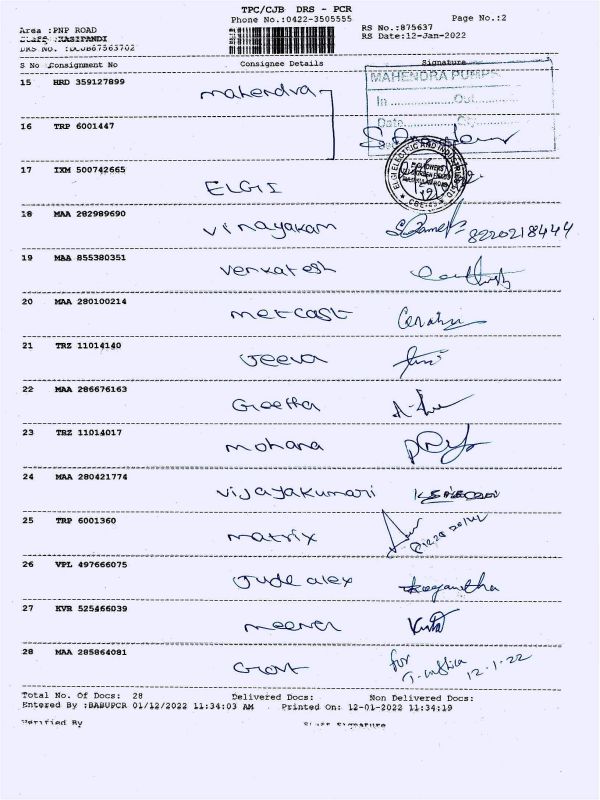 TPC/CJB DRS - PCR
Phone No.:0422-3505555
Page No.:2
Area :PNP ROAD
RS No.:875637
Staff :KASIPANDI
RS Date:12-Jan-2022
DRS No. :DCJB87563702
S No Consignment No Consignee Details Signature
MAHENDRA PUMPS
In ............Out............
Date............
15 HRD 359127899 Mahendra
16 TRP 6001447
17 IXM 500742665 ELGI
ELGI ELECTRIC AND INDUSTRIES LTD
18 MAA 282989690 Vinayakam 8220218444
19 MAA 855380351 Venkatesh
20 MAA 280100214 Metcast
21 TRZ 11014140 Jeeva
22 MAA 286676163 Geetha
23 TRZ 11014017 Mohana
24 MAA 280421774 Vijayakumari
25 TRP 6001360 Matrix
26 VPL 497666075 Jude alex
27 KVR 525466039 Meena
28 MAA 285864081 Grant for 12-1-22
Total No. Of Docs: 28 Delivered Docs: Non Delivered Docs:
Entered By :BABUPCR 01/12/2022 11:34:03 AM Printed On: 12-01-2022 11:34:19
Verified By Staff Signature